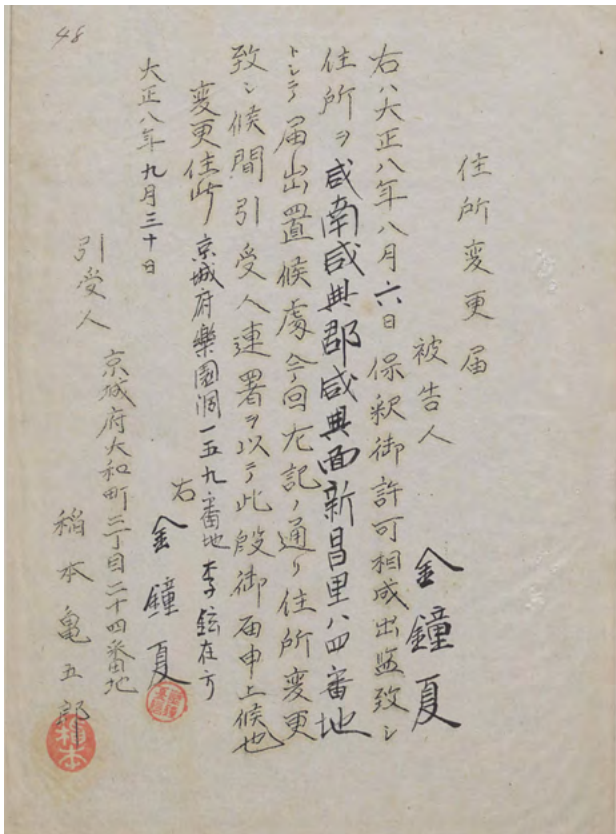 48
住所変更届
被告人 金鐘夏
右ハ大正八年八月六日保釈御許可相成出監致シ
住所ヲ咸南咸興郡咸興面新昌里八四番地
トシテ届出置候處今回左記ノ通リ住所変更
致シ候間引受人連署ヲ以テ此段御届申上候也
変更住所 京城府樂園洞一五九番地 李鉉在方
右 金鐘夏
大正八年九月三十日
京城府大和町三丁目二十四番地
引受人 稲本亀五郎
稲本